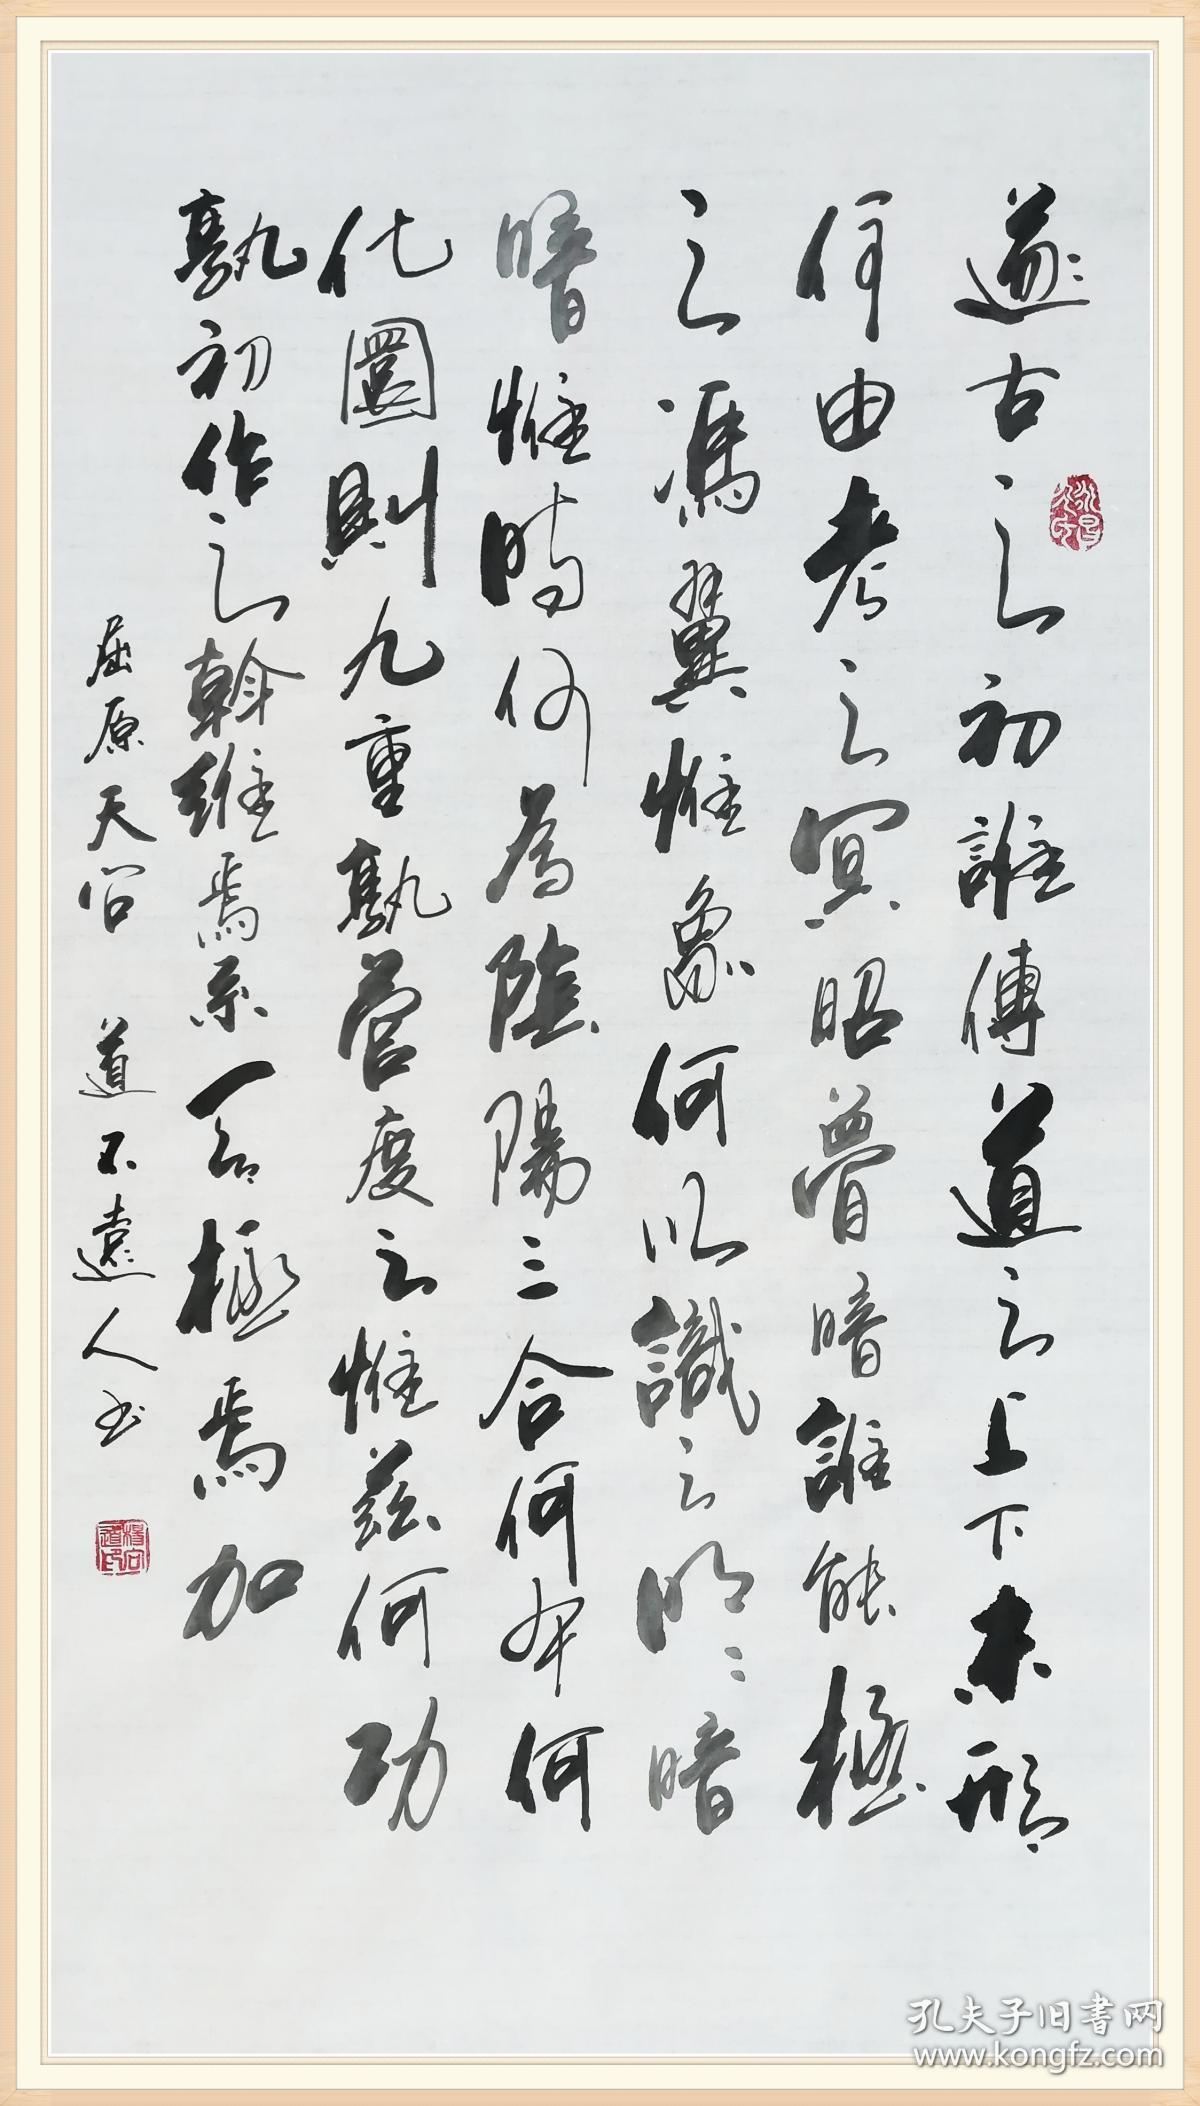 遂古之初誰傳道之上下未形
何由考之冥昭瞢暗誰能極
之馮翼惟象何以識之明〻暗
暗惟時何為陰陽三合何本何
化圜則九重孰營度之惟茲何功
孰初作之斡維焉系天極焉加
屈原天问 道不遠人书
孔夫子旧书网
www.kongfz.com